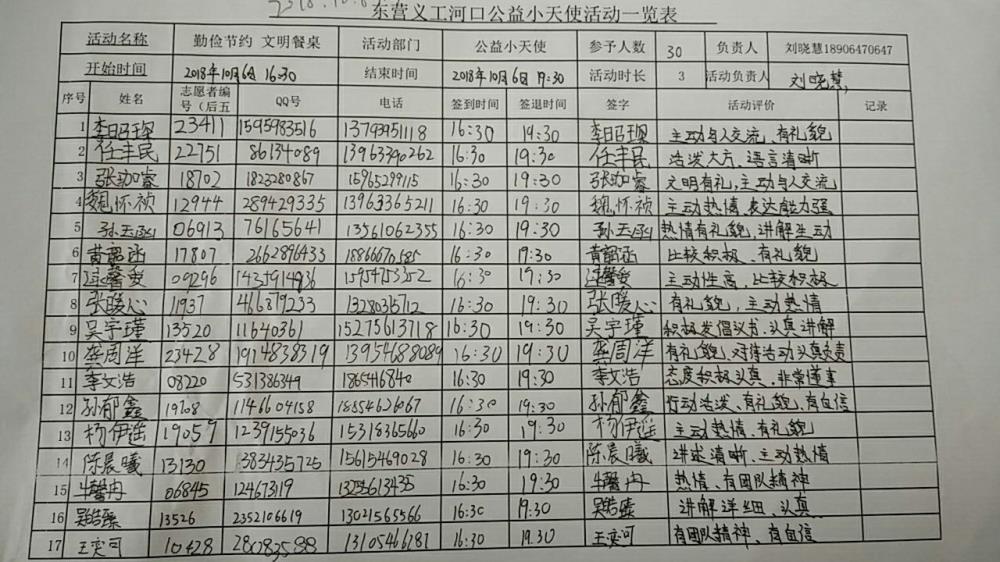 2018.10.6
东营义工河口公益小天使活动一览表
活动名称 勤俭节约 文明餐桌 活动部门 公益小天使 参予人数 30 负责人 刘晓慧18906470647
开始时间 2018年10月6日 16:30 结束时间 2018年10月6日 19:30 活动时长 3 活动负责人 刘晓慧
序号 姓名 志愿者编号(后五 QQ号 电话 签到时间 签退时间 签字 活动评价 记录
1 23411 1595983516 13793951118 16:30 19:30 主动与人交流、有礼貌
2 任丰民 22751 86134089 13963390262 16:30 19:30 任丰民 活泼大方、语言清晰
3 张珈睿 18702 1823280867 15965299115 16:30 19:30 张珈睿 文明有礼,主动与人交流
4 魏怀祯 12944 289429335 13963365211 16:30 19:30 魏怀祯 主动热情 表达能力强
5 孙玉函 06913 76165641 13561062355 16:30 19:30 孙玉函 热情有礼貌,讲解生动
6 黄韶涵 17807 2662896433 16:30 19:30 黄韶涵 比较积极、有礼貌
7 09296 16:30 19:30 主动性高、比较积极
8 张暖心 11937 466879233 16:30 19:30 张暖心 有礼貌,主动热情
9 吴宇瑾 13520 11640361 15275613718 16:30 19:30 吴宇瑾 积极发倡议书、认真讲解
10 龚周洋 23428 1914838319 13954688089 16:30 19:30 龚周洋 有礼貌,对待活动认真负责
11 李文浩 08220 531386349 1865416840 16:30 19:30 李文浩 态度积极认真、非常懂事
12 孙郁鑫 19708 1146604158 18854626067 16:30 19:30 孙郁鑫 行动活泼、有礼貌,有自信
13 杨伊遥 19059 1239155036 15318365660 16:30 19:30 杨伊遥 主动热情、有礼貌
14 陈晨曦 13130 1383435725 15615469028 16:30 19:30 陈晨曦 讲述清晰、主动热情
15 牛馨冉 06845 12467319 16:30 19:30 牛馨冉 热情、有团队精神
16 吴皓臻 13526 2352106619 13021565566 16:30 19:30 吴皓臻 讲解详细、认真
17 王奕可 10428 28083588 13105466781 16:30 19:30 王奕可 有团队精神、有自信